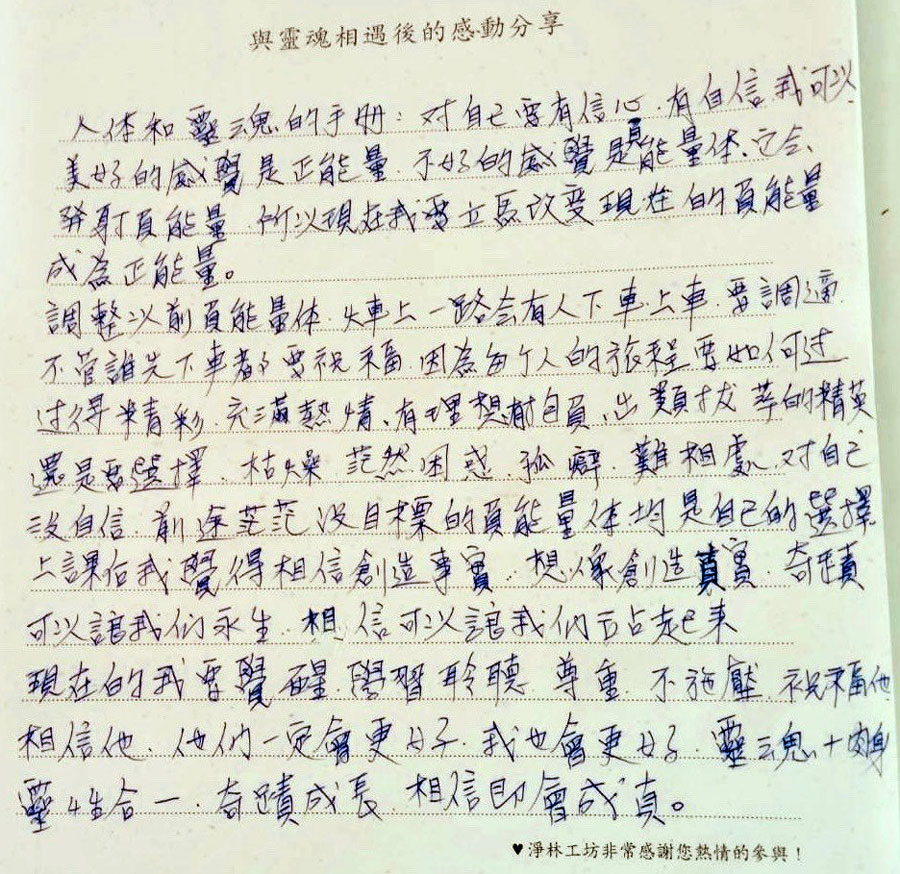 與靈魂相遇後的感動分享
人体和靈魂的手册：对自己要有信心.有自信我可以
美好的感覺是正能量.不好的感覺是負能量体、它会、
發射負能量.所以現在我要立馬改变現在的負能量
成為正能量。
調整以前負能量体.火車上一路会有人下車.上車.要調適.
不管誰先下車都要祝福.因為每个人的旅程要如何过
过得精彩.充滿熱情、有理想抱負、出類拔萃的精英
還是要選擇.枯燥 茫然困惑.孤癖.難相處、对自己
沒自信.前途茫茫沒目標的負能量体均是自己的選擇
上課后我覺得相信創造事實.想像創造真實.奇蹟
可以讓我們永生.相信可以讓我們站起來
現在的我要覺醒.學習聆聽.尊重.不施壓.祝福他
相信他.他們一定會更好.我也會更好.靈魂+肉身
靈性合一.奇蹟成長.相信即會成真。
♥淨林工坊非常感謝您熱情的參與！